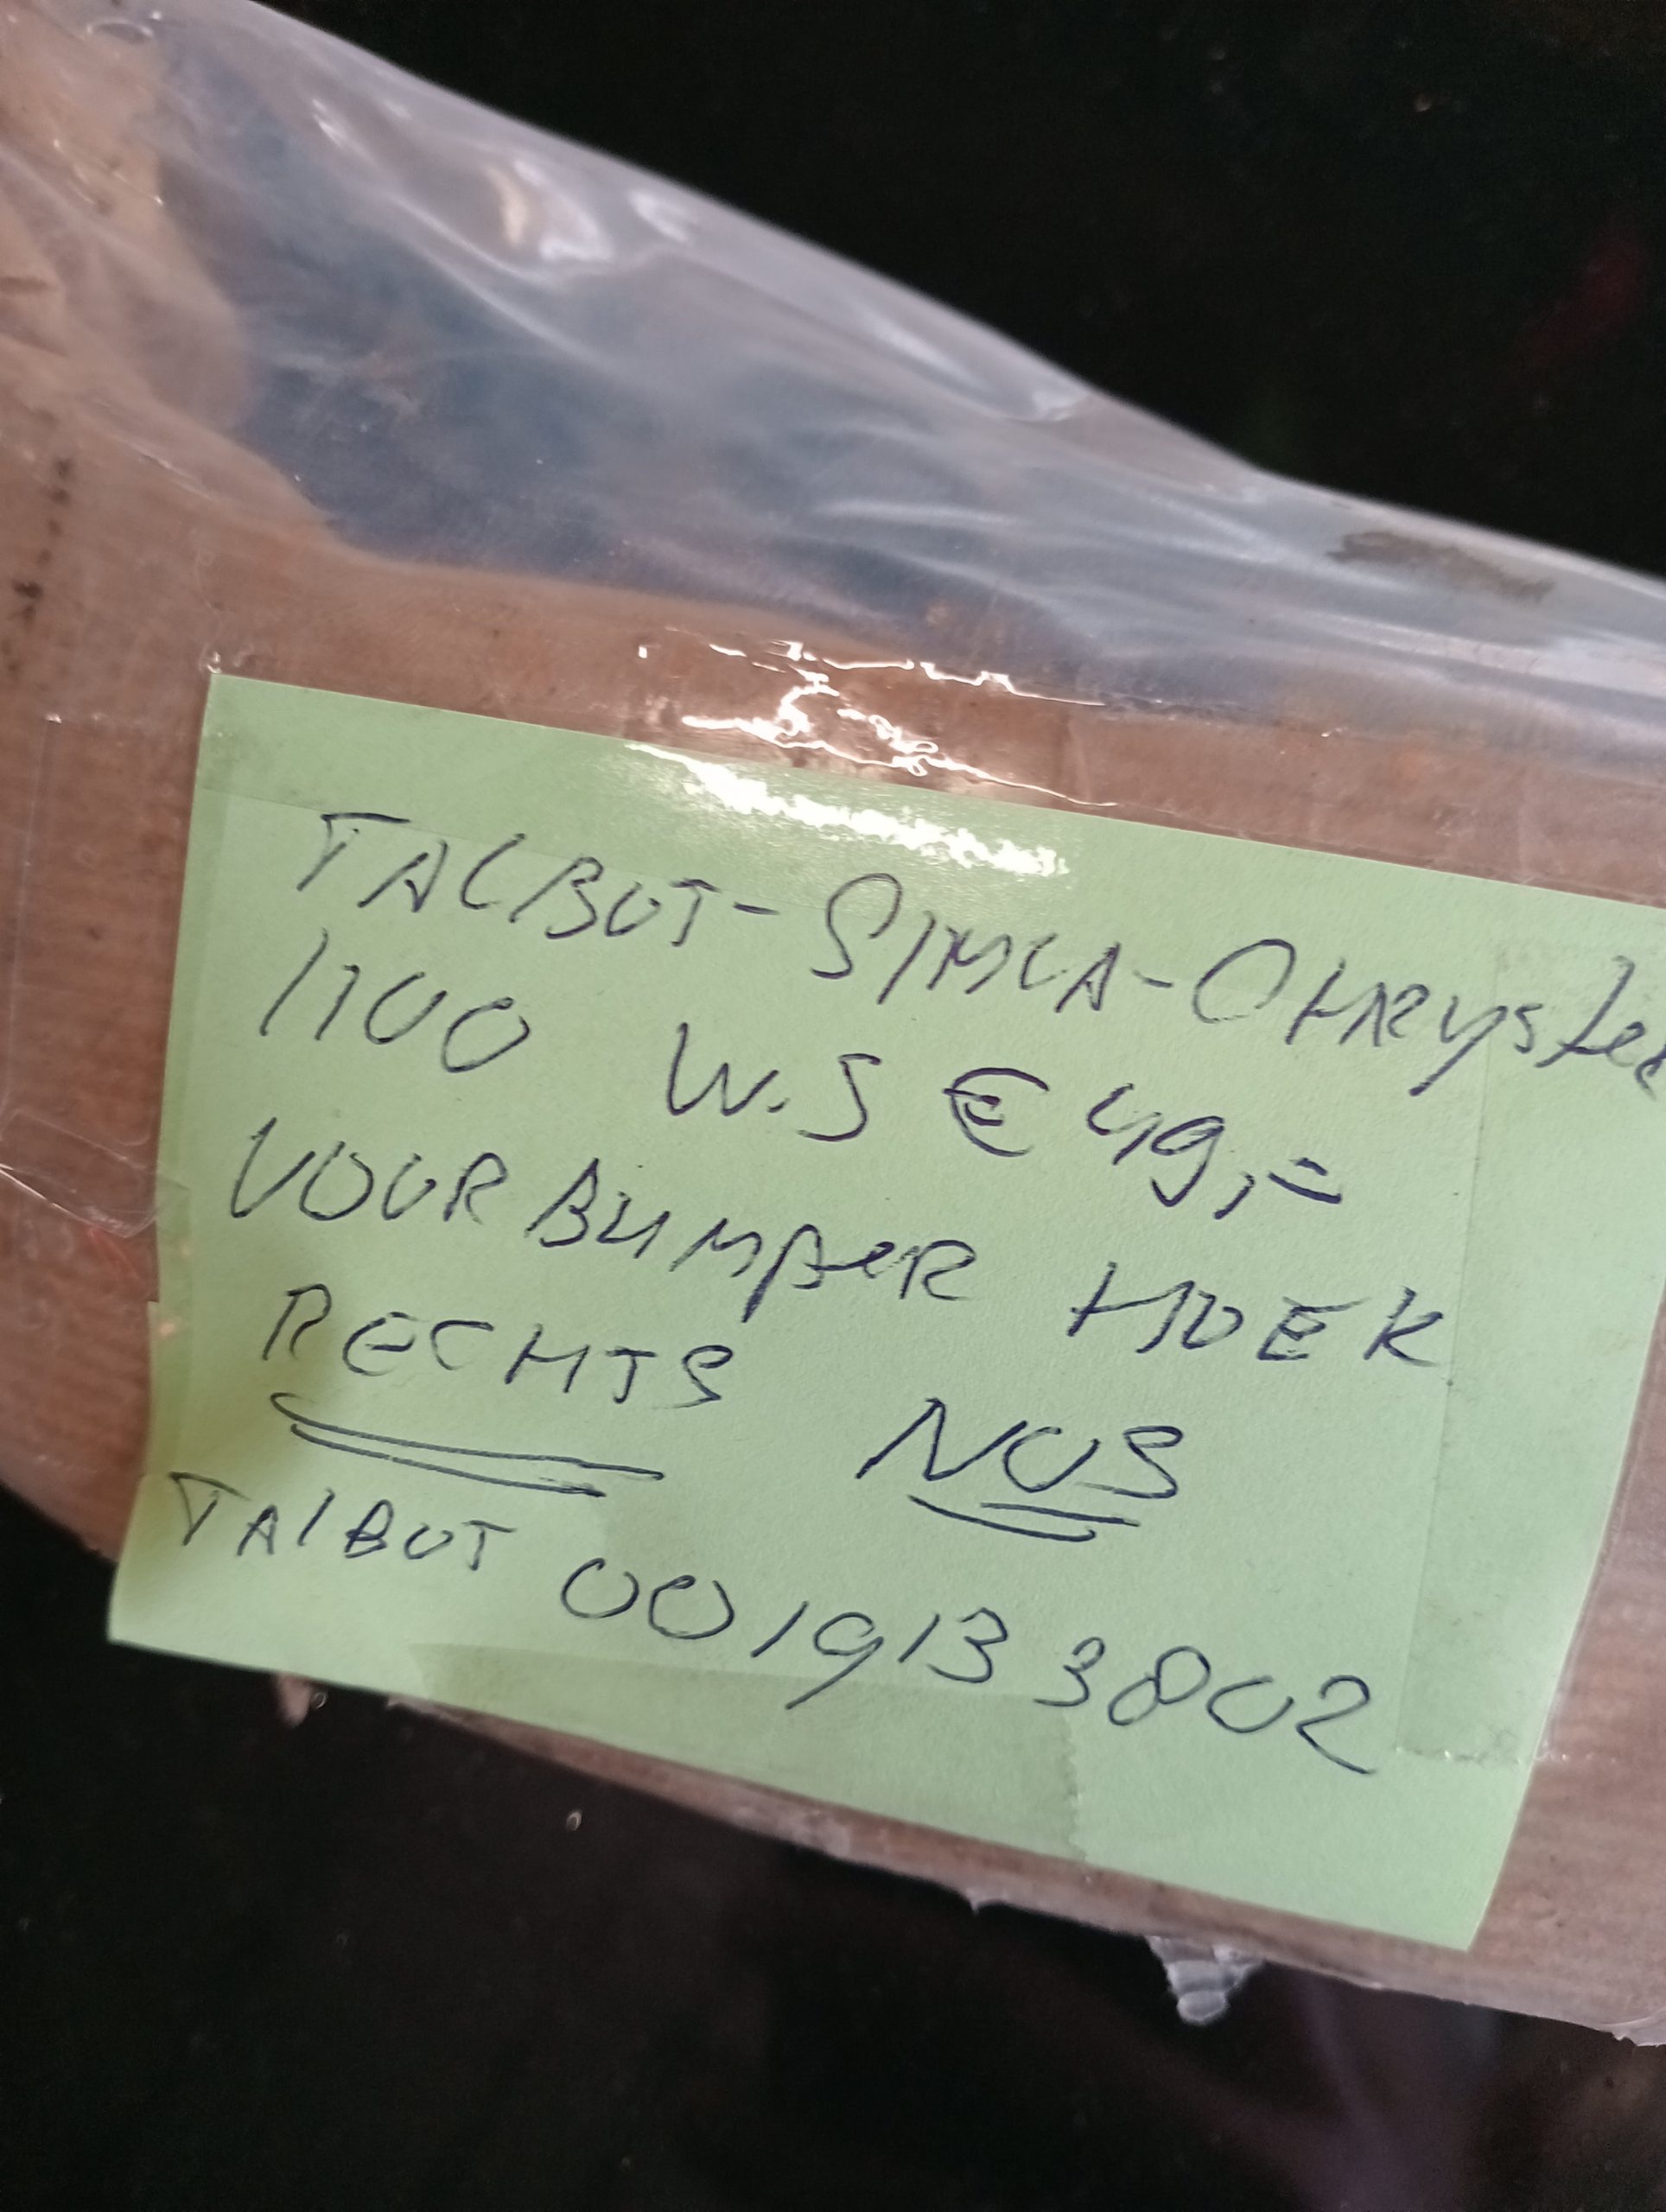 TALBOT-SIMCA-CHRYSLER
1100 W.S € 49,=
VOORBUMPER HOEK
RECHTS NOS
TALBOT 0019133802